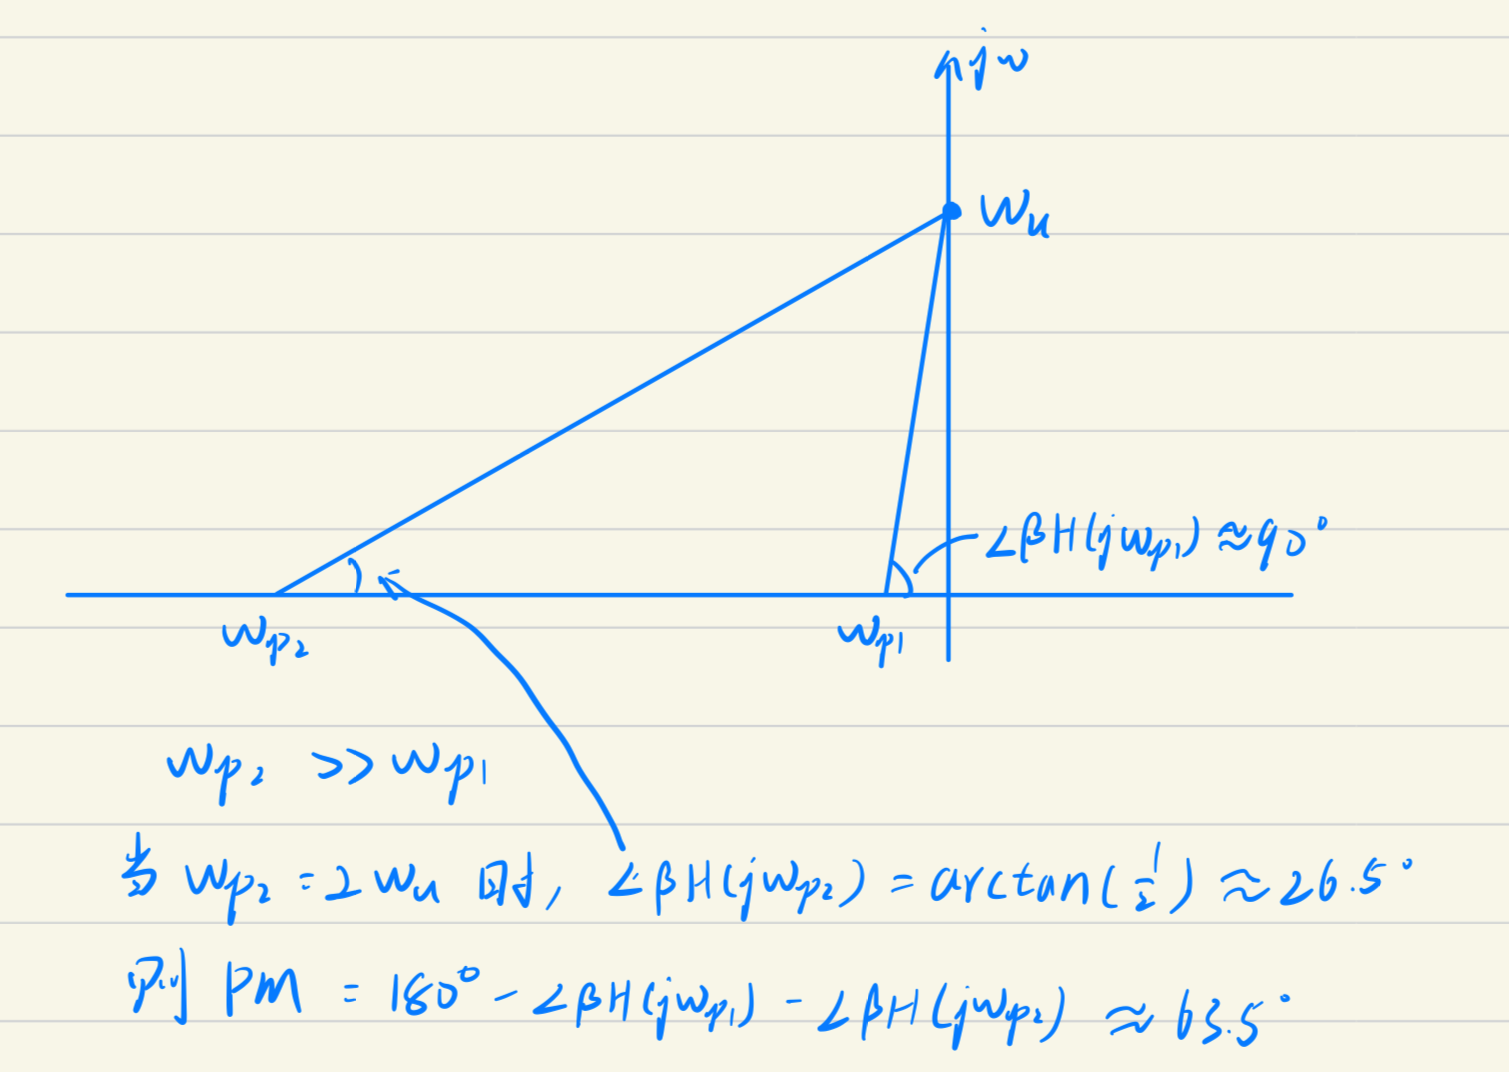 jw
Wu
∠βH(jwp1) ≈ 90°
Wp2
Wp1
Wp2 >> Wp1
当 Wp2 = 2Wu 时, ∠βH(jwp2) = arctan(1/2) ≈ 26.5°
则 PM = 180° - ∠βH(jwp1) - ∠βH(jwp2) ≈ 63.5°